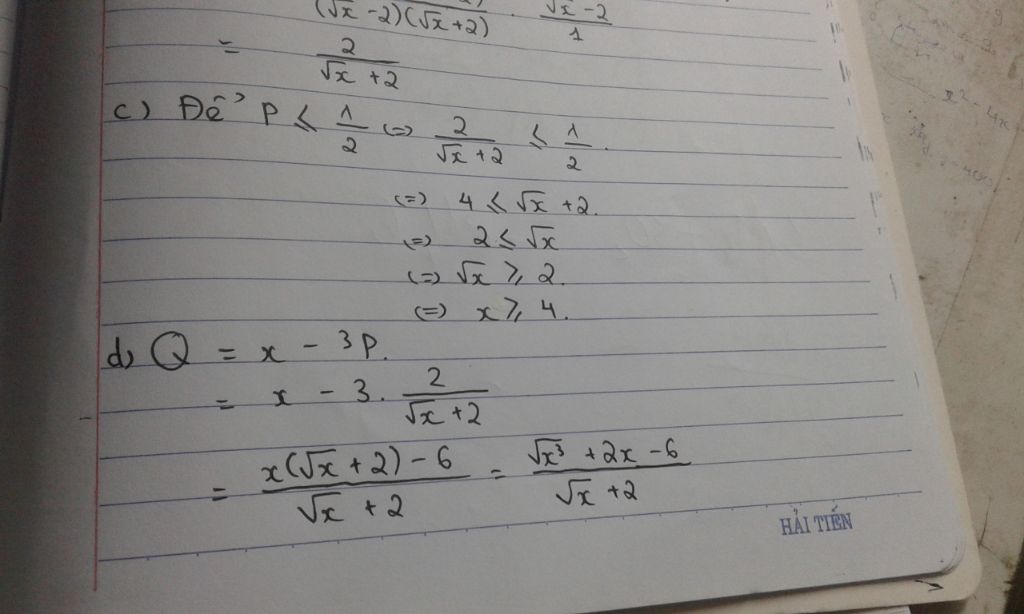 (√x -2)(√x +2) . √x -2 / 1
= 2 / √x +2
c) Để P ≤ 1/2 (=) 2 / √x +2 ≤ 1/2.
(=) 4 ≤ √x +2.
(=) 2 ≤ √x
(=) √x ≥ 2.
(=) x ≥ 4.
d) Q = x - 3P.
= x - 3. 2 / √x +2
= x(√x +2) - 6 / √x +2 = √x³ +2x -6 / √x +2
HẢI TIẾN